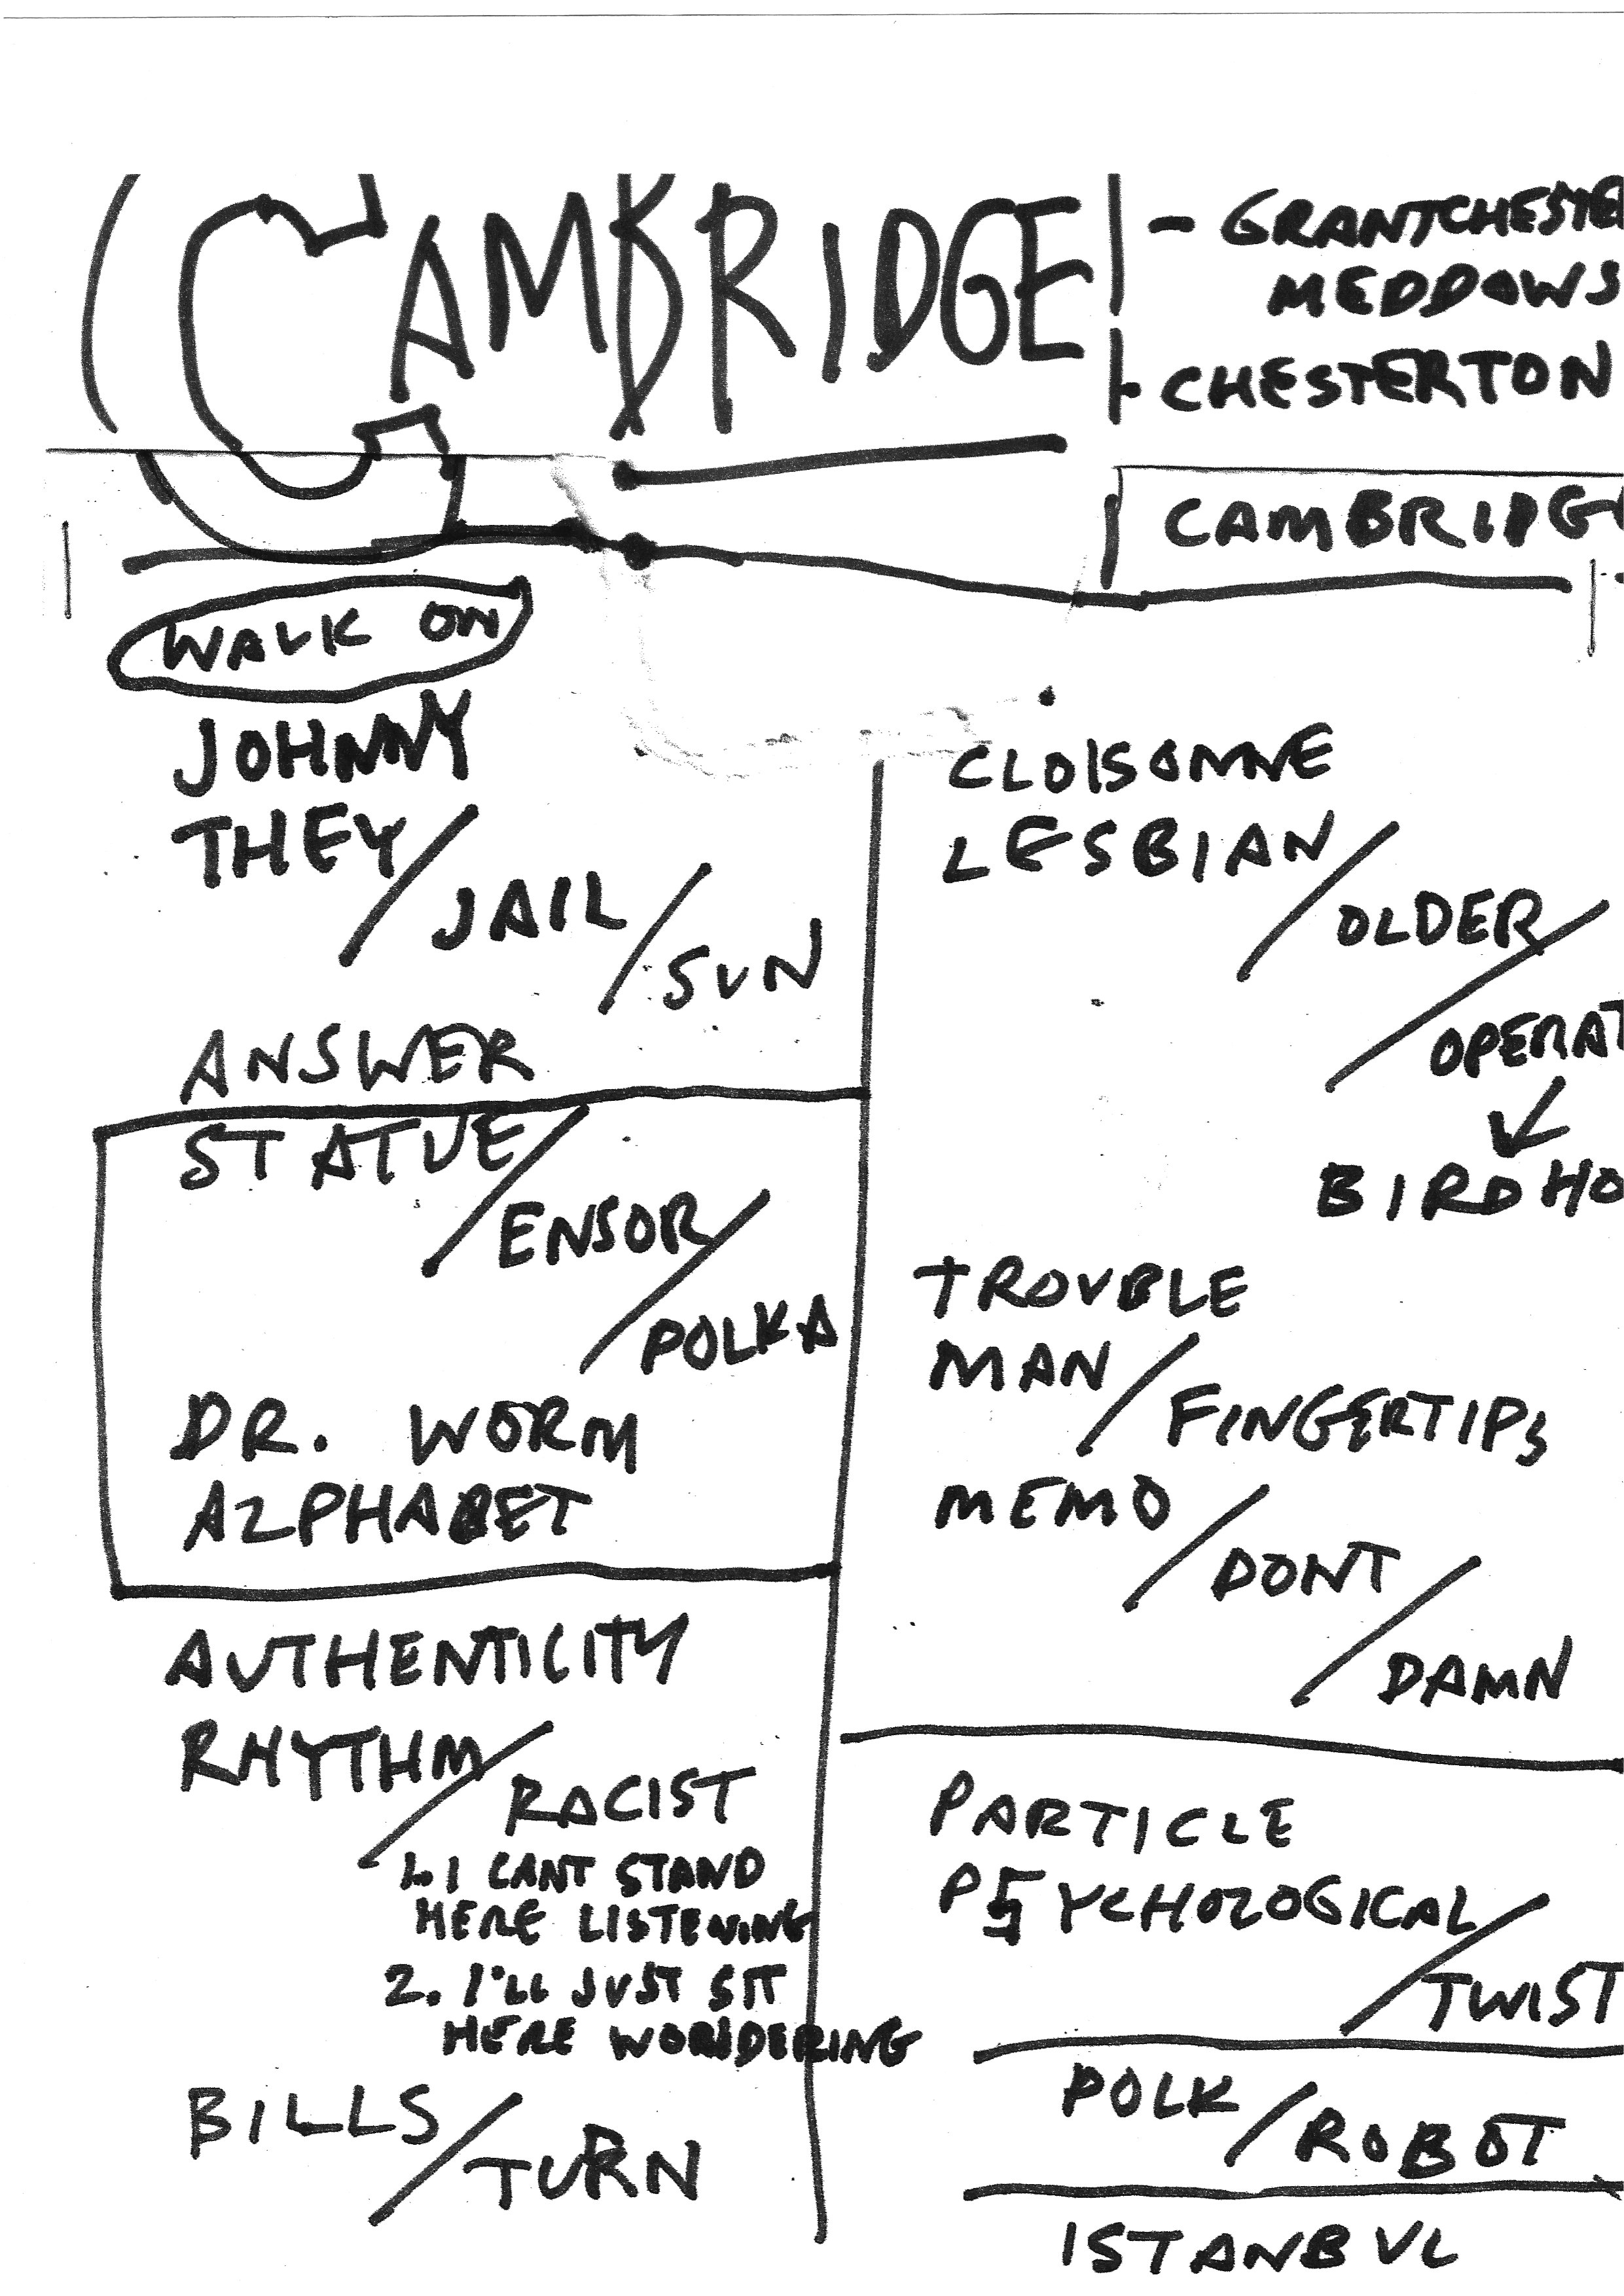 CAMBRIDGE
- GRANTCHESTE
MEDDOWS
- CHESTERTON
CAMBRIDG
WALK ON
JOHNNY
THEY/JAIL/SUN
ANSWER
STATUE/ENSOR/POLKA
DR. WORM
ALPHABET
AUTHENTICITY
RHYTHM/RACIST
1. I CANT STAND
HERE LISTENING
2. I'LL JUST SIT
HERE WONDERING
BILLS/TURN
CLOISONNE
LESBIAN/OLDER/OPERAT
BIRDHO
TROUBLE
MAN/FINGERTIPS
MEMO/DONT/DAMN
PARTICLE
PSYCHOLOGICAL/TWIST
POLK/ROBOT
ISTANBUL